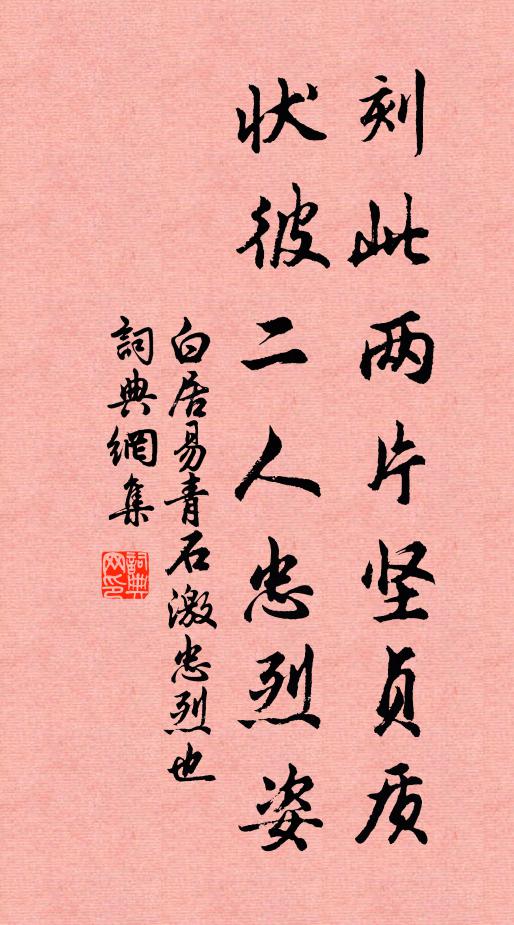 刻此两片坚贞质
状彼二人忠烈姿
白居易青石激忠烈也
詞典網集
詞典網印